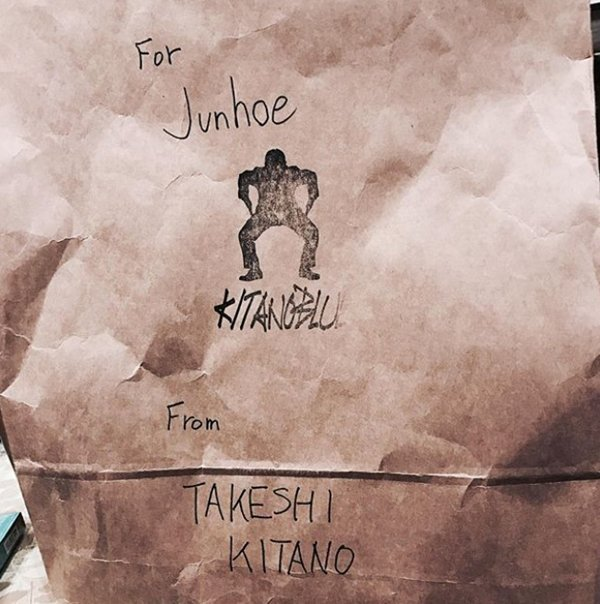 For
Junhoe
KITANOBLU
From
TAKESHI
KITANO